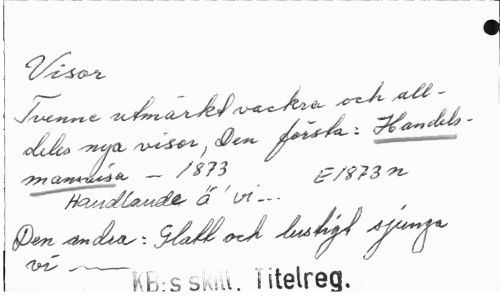 Visor
Tvenne utmärkt vackra och all-
deles nya visor, Den första: Handels-
mannvisa - 1873
E1873n
Handlande ä' vi...
Den andra: Glatt och lustigt sjunga
vi —
KB:s skill. Titelreg.